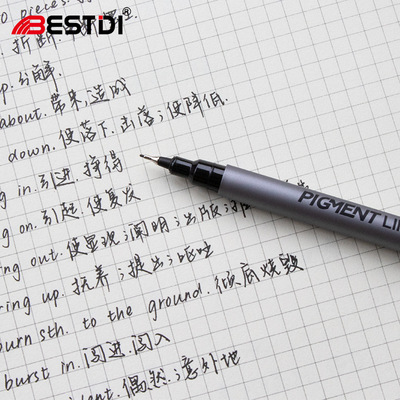 BESTDI®
o pieces.
折断
p. 分解.
about. 带来;造成
down. 使落下. 击落;使降低.
g in. 引进. 挣得
g on. 引起. 使复发
ing out. 使显现;阐明;出版;
ring up. 抚养;提出;呕吐
burn sth. to the ground. 倾底烧毁
burst in. 闯进. 闯入
ident. 偶然;意外地
PIGMENT LI